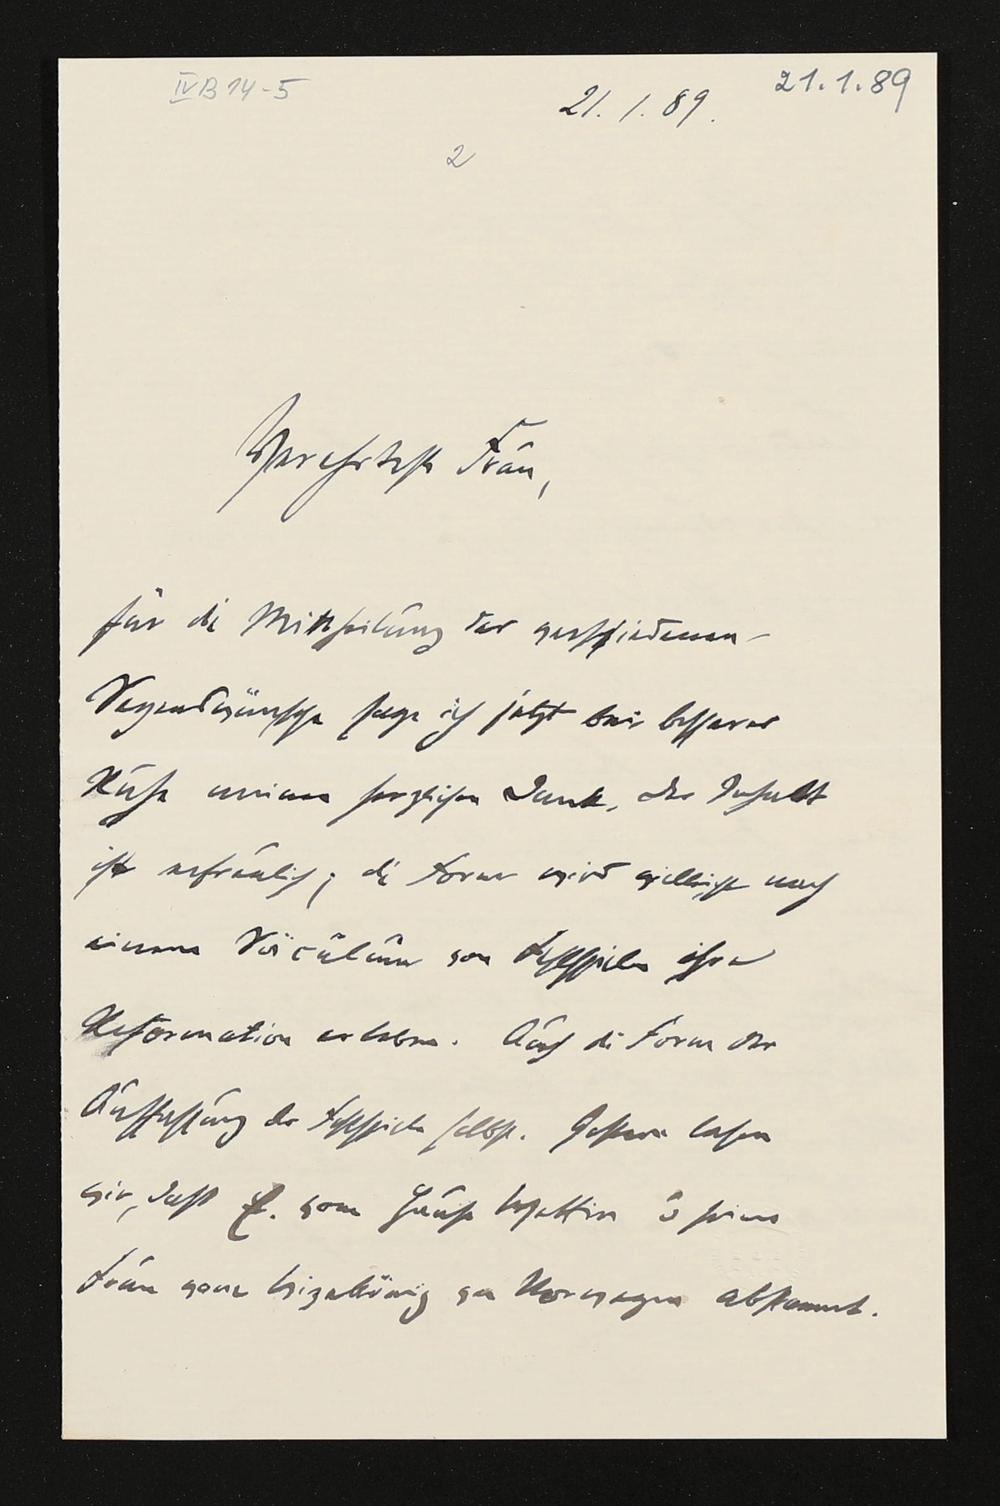 IV B 14-5
21.1.89
21. 1. 89.
2
Verehrteste Frau,
für die Mittheilung der verschiedenen
sage ich jetzt bei besserer
Ruhe meinen herzlichen Dank, der Inhalt
ist erfreulich; die Form wird nach
einem von Festspielen ihre
Reformation erleben. Auch die Form der
Auffassung der Festspiele selbst. Gestern lasen
wir, dass E. vom Hause Wettin u seine
Frau vom Vizekönig von Norwegen abstammt.